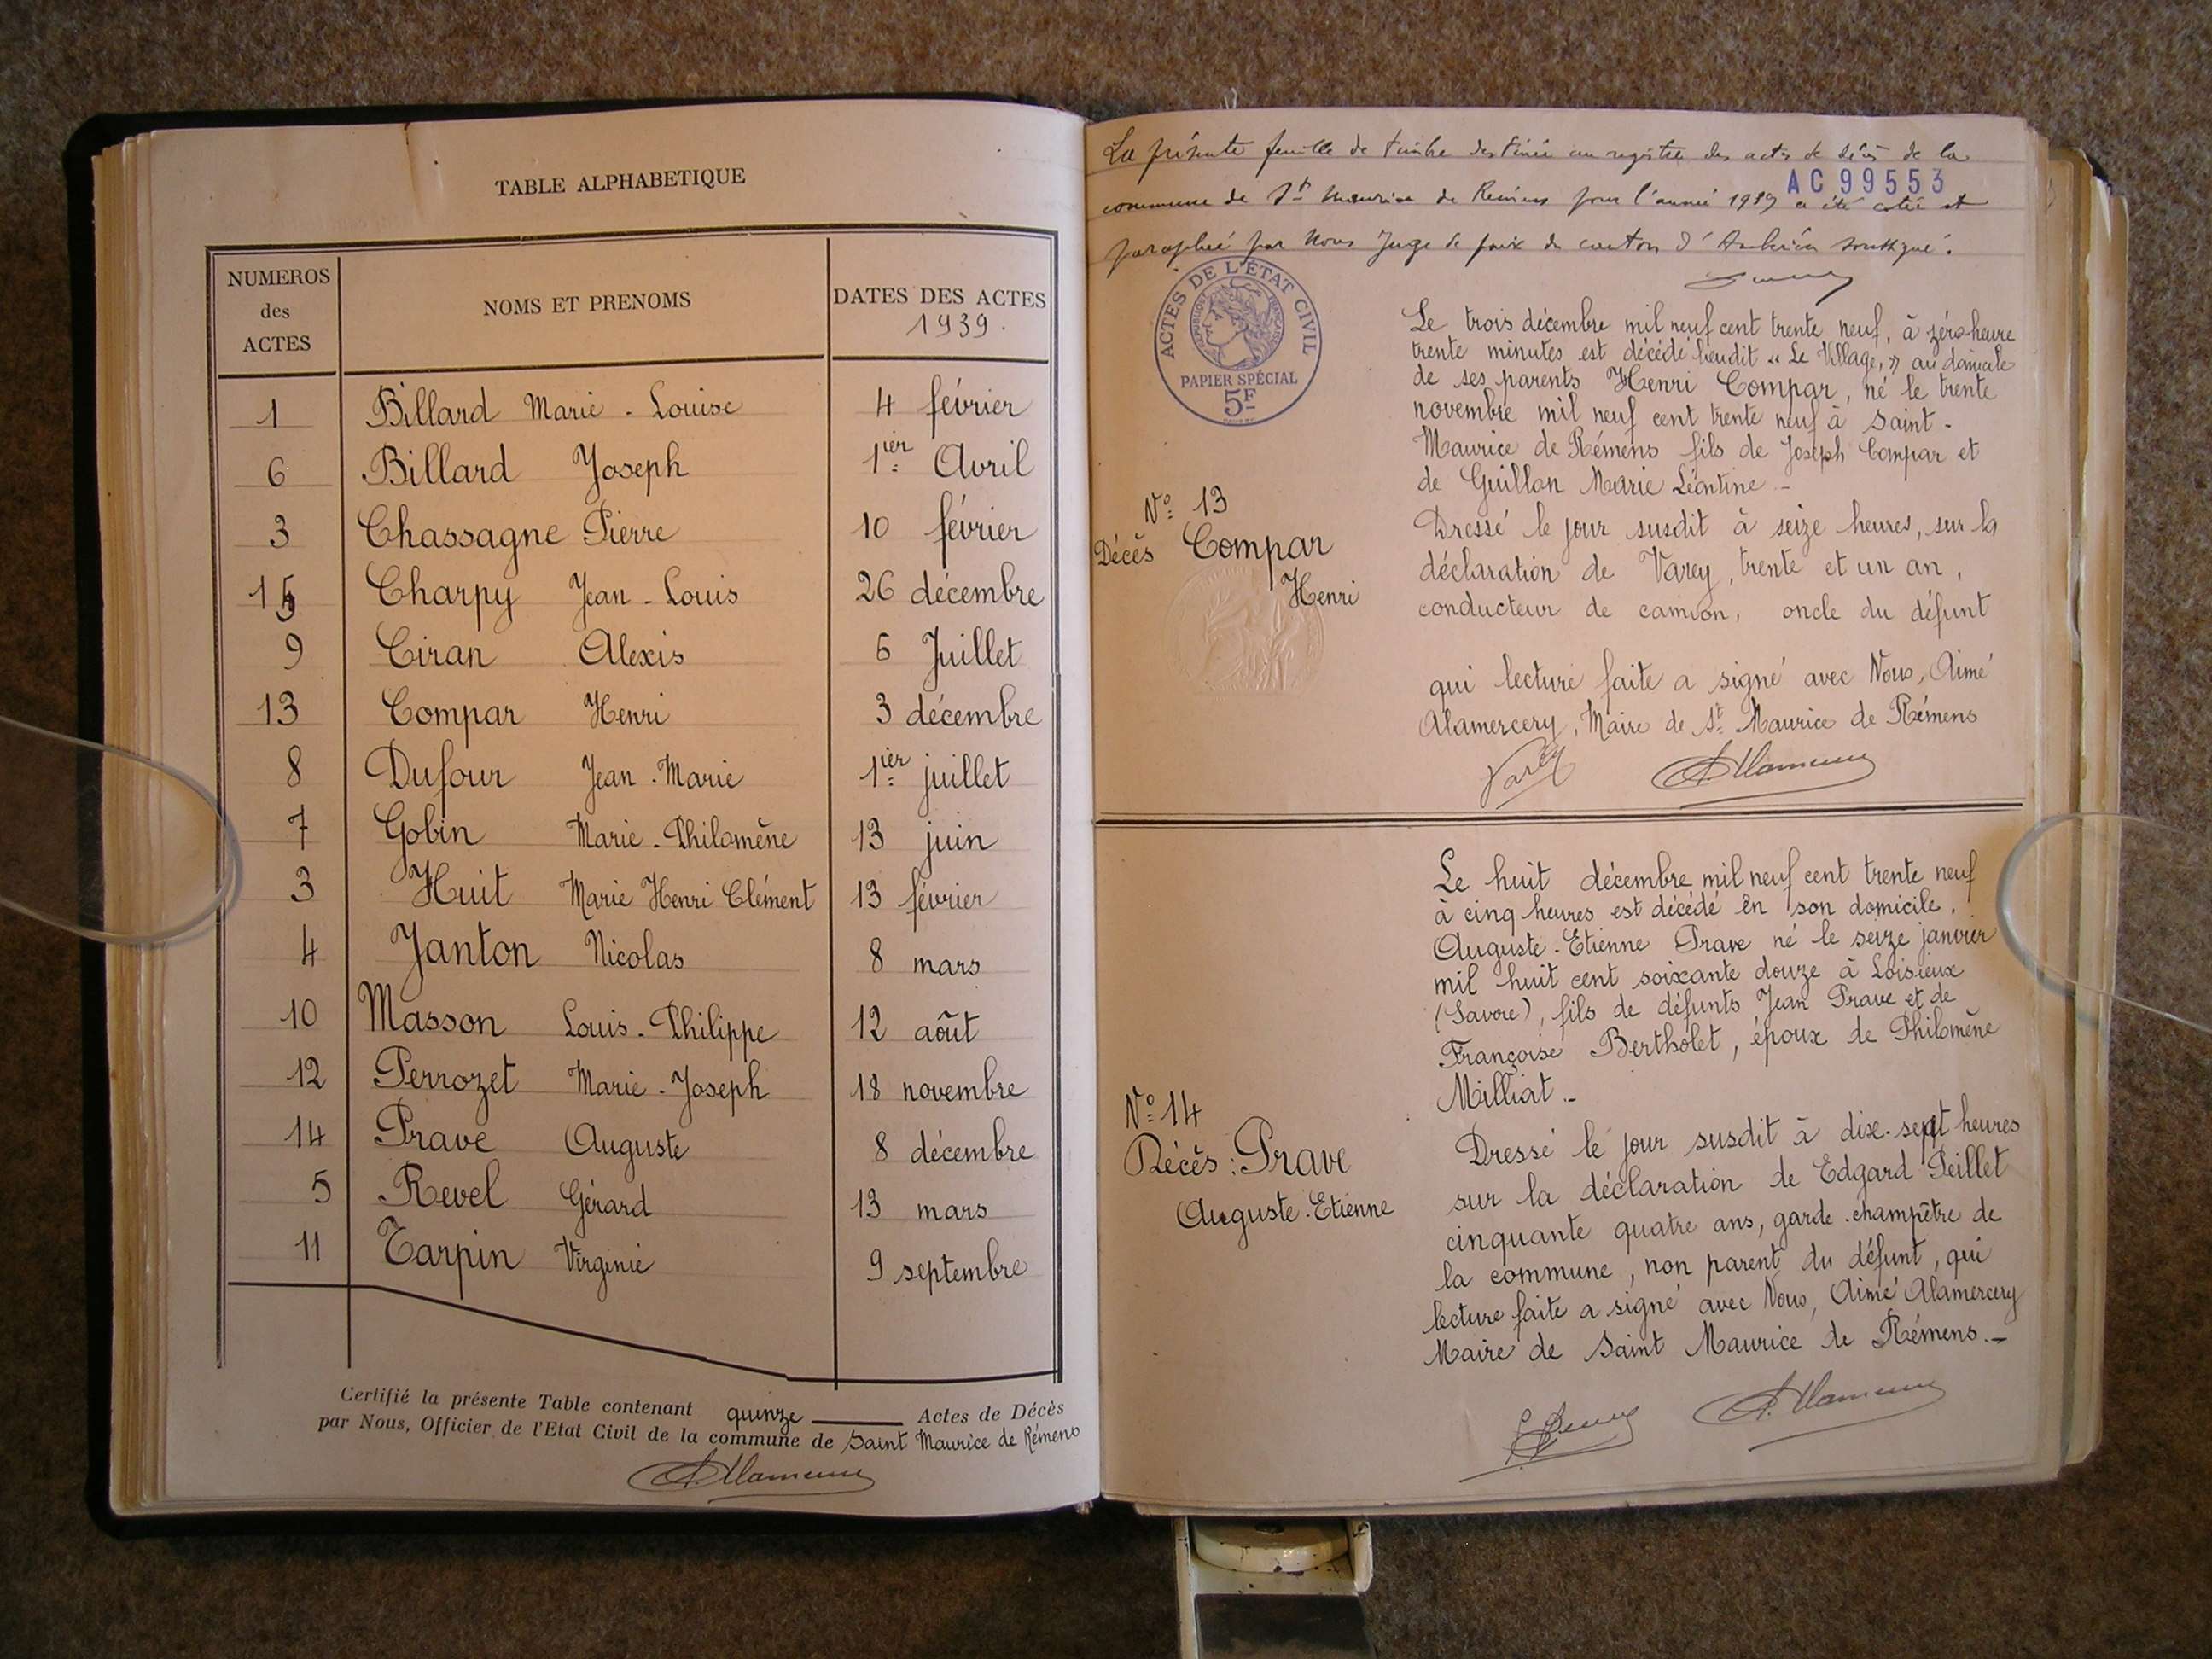 TABLE ALPHABETIQUE
NUMEROS des ACTES NOMS ET PRENOMS DATES DES ACTES 1939.
1 Billard Marie-Louise 4 février
6 Billard Joseph 1ier Avril
3 Chassagne Pierre 10 février
15 Charpy Jean-Louis 26 décembre
9 Ciran Alexis 6 Juillet
13 Compar Henri 3 décembre
8 Dufour Jean-Marie 1ier juillet
7 Gobin Marie-Philomène 13 juin
3 Huit Marie Henri Clément 13 février
4 Janton Nicolas 8 mars
10 Masson Louis-Philippe 12 août
12 Perrozet Marie-Joseph 18 novembre
14 Prave Auguste 8 décembre
5 Revel Gérard 13 mars
11 Tarpin Virginie 9 septembre
Certifié la présente Table contenant quinze Actes de Décès
par Nous, Officier de l'Etat Civil de la commune de Saint Maurice de Rémens
La présente feuille de timbre destinée au registre des actes de décès de la
AC 99553
commune de St Maurice de Rémens pour l'année 1939 a été cotée et
paraphée par Nous Juge de paix du canton d'Ambérieu soussigné.
ACTES DE L'ÉTAT CIVIL
RÉPUBLIQUE FRANÇAISE
PAPIER SPÉCIAL
5F
No 13
Décès Compar
Henri
Le trois décembre mil neuf cent trente neuf, à zéro heure
trente minutes est décédé lieudit « Le Village, » au domicile
de ses parents Henri Compar, né le trente
novembre mil neuf cent trente neuf à Saint-
Maurice de Rémens fils de Joseph Compar et
de Guillon Marie Léontine -
Dressé le jour susdit à seize heures, sur la
déclaration de Varey, trente et un an,
conducteur de camion, oncle du défunt
qui lecture faite a signé avec Nous, Aimé
Alamercery, Maire de St Maurice de Rémens
Varey
No 14
Décès : Prave
Auguste-Etienne
Le huit décembre mil neuf cent trente neuf
à cinq heures est décédé en son domicile,
Auguste-Etienne Prave né le seize janvier
mil huit cent soixante douze à Loisieux
(Savoie), fils de défunts Jean Prave et de
Françoise Bertholet, époux de Philomène
Milliat.-
Dressé le jour susdit à dix-sept heures
sur la déclaration de Edgard Peillet
cinquante quatre ans, garde-champêtre de
la commune, non parent du défunt, qui
lecture faite a signé avec Nous, Aimé Alamercery
Maire de Saint Maurice de Rémens.-